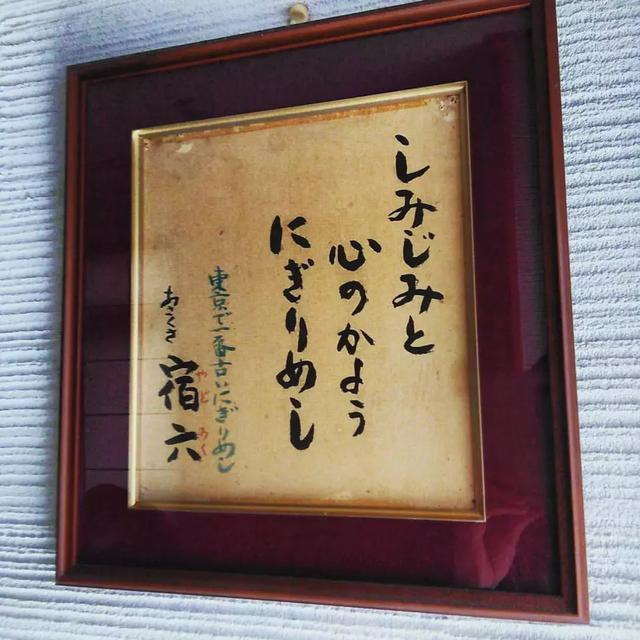 しみじみと
心のかよう
にぎりめし
東京で一番古いにぎりめし
あさくさ
宿六
やどろく